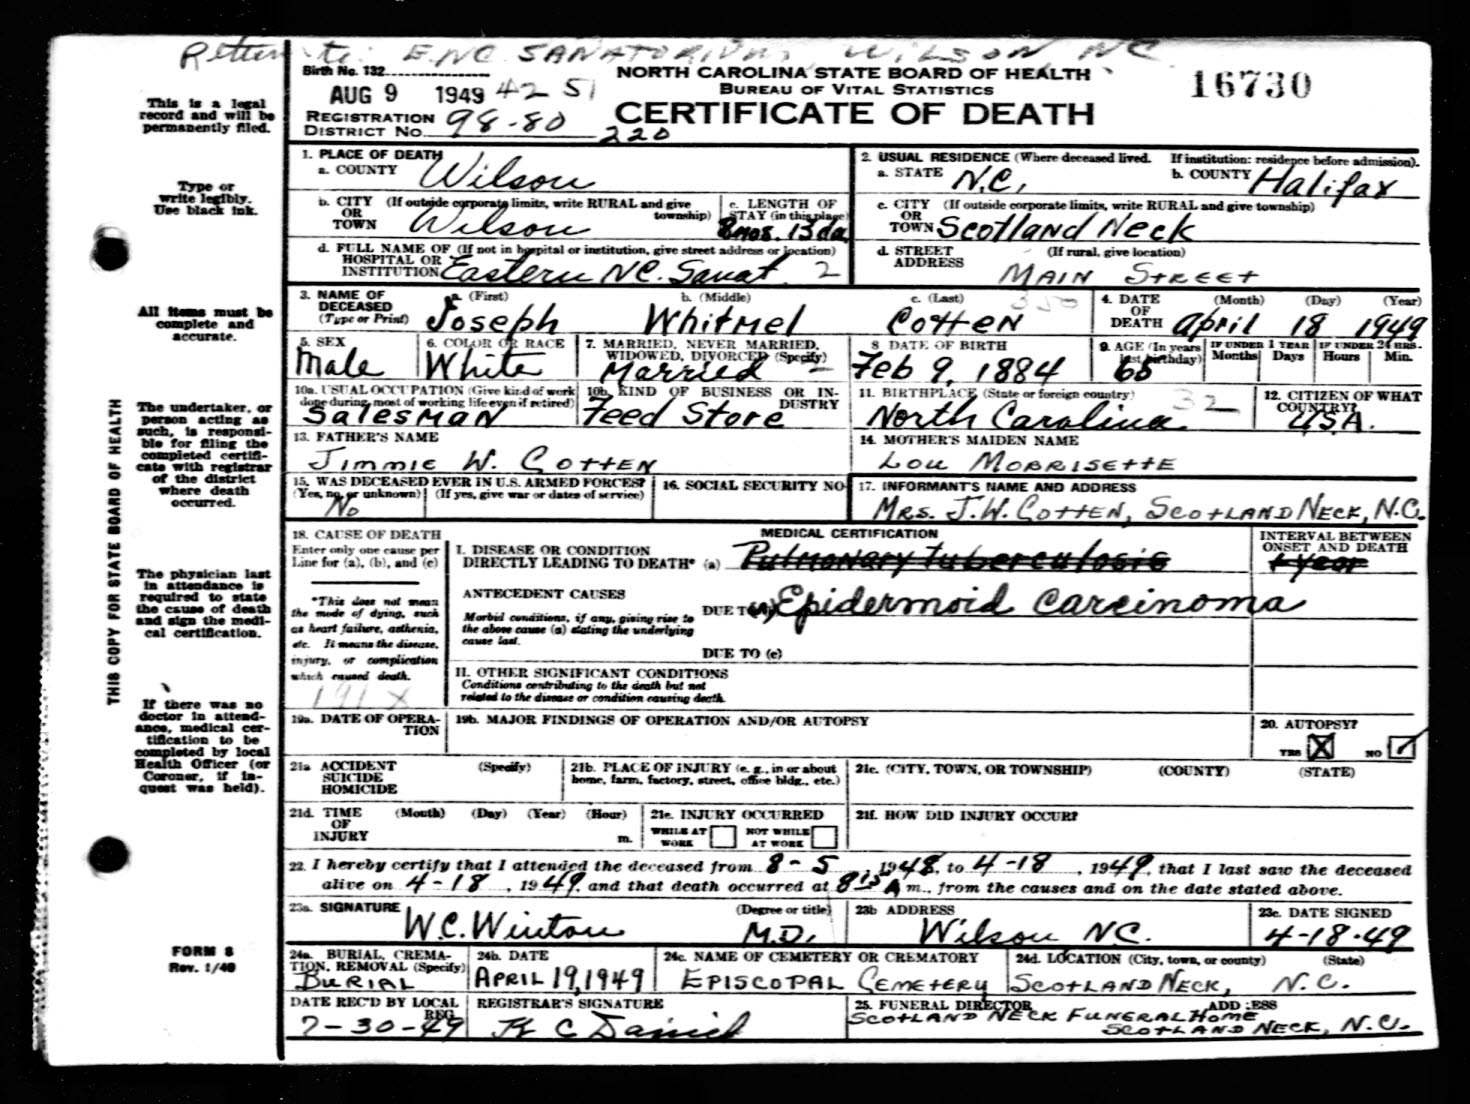 Return to: E.N.C. SANATORIUM, WILSON NC
Birth No. 132
NORTH CAROLINA STATE BOARD OF HEALTH
BUREAU OF VITAL STATISTICS
CERTIFICATE OF DEATH
16730
AUG 9 1949 42 51
REGISTRATION DISTRICT No. 98-80 220
This is a legal
record and will be
permanently filed.
Type or
write legibly.
Use black ink.
All items must be
complete and
accurate.
The undertaker, or
person acting as
such, is responsi-
ble for filing the
completed certifi-
cate with registrar
of the district
where death
occurred.
The physician last
in attendance is
required to state
the cause of death
and sign the medi-
cal certification.
If there was no
doctor in attend-
ance, medical cer-
tification to be
completed by local
Health Officer (or
Coroner, if in-
quest was held).
FORM 8
Rev. 1/49
THIS COPY FOR STATE BOARD OF HEALTH
1. PLACE OF DEATH
a. COUNTY Wilson
b. CITY (If outside corporate limits, write RURAL and give township)
OR
TOWN Wilson
c. LENGTH OF STAY (in this place)
8 mos. 13 da
d. FULL NAME OF (If not in hospital or institution, give street address or location)
HOSPITAL OR
INSTITUTION Eastern NC. Sanat. 2
2. USUAL RESIDENCE (Where deceased lived. If institution: residence before admission).
a. STATE N.C.
b. COUNTY Halifax
c. CITY (If outside corporate limits, write RURAL and give township)
OR
TOWN Scotland Neck
d. STREET ADDRESS (If rural, give location)
MAIN STREET
3. NAME OF DECEASED (Type or Print)
a. (First) Joseph
b. (Middle) Whitmel
c. (Last) 350 Cotten
4. DATE OF DEATH (Month) (Day) (Year)
April 18 1949
5. SEX Male
6. COLOR OR RACE White
7. MARRIED, NEVER MARRIED, WIDOWED, DIVORCED (Specify)
Married
8 DATE OF BIRTH
Feb 9, 1884
9. AGE (In years last birthday) 65
IF UNDER 1 YEAR Months Days
IF UNDER 24 HRS. Hours Min.
10a. USUAL OCCUPATION (Give kind of work done during most of working life even if retired)
Salesman
10b. KIND OF BUSINESS OR INDUSTRY
Feed Store
11. BIRTHPLACE (State or foreign country) 32
North Carolina
12. CITIZEN OF WHAT COUNTRY?
USA.
13. FATHER'S NAME
Jimmie W. Cotten
14. MOTHER'S MAIDEN NAME
Lou Morrisette
15. WAS DECEASED EVER IN U.S. ARMED FORCES?
(Yes, no, or unknown) (If yes, give war or dates of service)
No
16. SOCIAL SECURITY NO
17. INFORMANT'S NAME AND ADDRESS
Mrs. J.W. Cotten, Scotland Neck, N.C.
18. CAUSE OF DEATH
Enter only one cause per
Line for (a), (b), and (c)
*This does not mean
the mode of dying, such
as heart failure, asthenia,
etc. It means the disease,
injury, or complication
which caused death.
191X
MEDICAL CERTIFICATION
I. DISEASE OR CONDITION
DIRECTLY LEADING TO DEATH* (a) Pulmonary tuberculosis
INTERVAL BETWEEN ONSET AND DEATH
1 year
ANTECEDENT CAUSES
Morbid conditions, if any, giving rise to
the above cause (a) stating the underlying
cause last.
DUE TO (a) Epidermoid carcinoma
DUE TO (c)
II. OTHER SIGNIFICANT CONDITIONS
Conditions contributing to the death but not
related to the disease or condition causing death.
19a. DATE OF OPERATION
19b. MAJOR FINDINGS OF OPERATION AND/OR AUTOPSY
20. AUTOPSY?
YES X NO ✓
21a ACCIDENT (Specify)
SUICIDE
HOMICIDE
21b. PLACE OF INJURY (e. g., in or about
home, farm, factory, street, office bldg., etc.)
21c. (CITY, TOWN, OR TOWNSHIP) (COUNTY) (STATE)
21d. TIME OF INJURY (Month) (Day) (Year) (Hour) m.
21e. INJURY OCCURRED
WHILE AT WORK NOT WHILE AT WORK
21f. HOW DID INJURY OCCUR?
22. I hereby certify that I attended the deceased from 8-5, 1948, to 4-18, 1949, that I last saw the deceased
alive on 4-18, 1949, and that death occurred at 8:15 A m., from the causes and on the date stated above.
23a. SIGNATURE (Degree or title)
W.C. Winton M.D.
23b ADDRESS
Wilson NC.
23c. DATE SIGNED
4-18-49
24a. BURIAL, CREMATION, REMOVAL (Specify)
BURIAL
24b. DATE
APRIL 19, 1949
24c. NAME OF CEMETERY OR CREMATORY
EPISCOPAL CEMETERY
24d. LOCATION (City, town, or county) (State)
SCOTLAND NECK, N.C.
DATE REC'D BY LOCAL REG.
7-30-49
REGISTRAR'S SIGNATURE
C Daniel
25. FUNERAL DIRECTOR ADDRESS
SCOTLAND NECK FUNERAL HOME
SCOTLAND NECK, N.C.